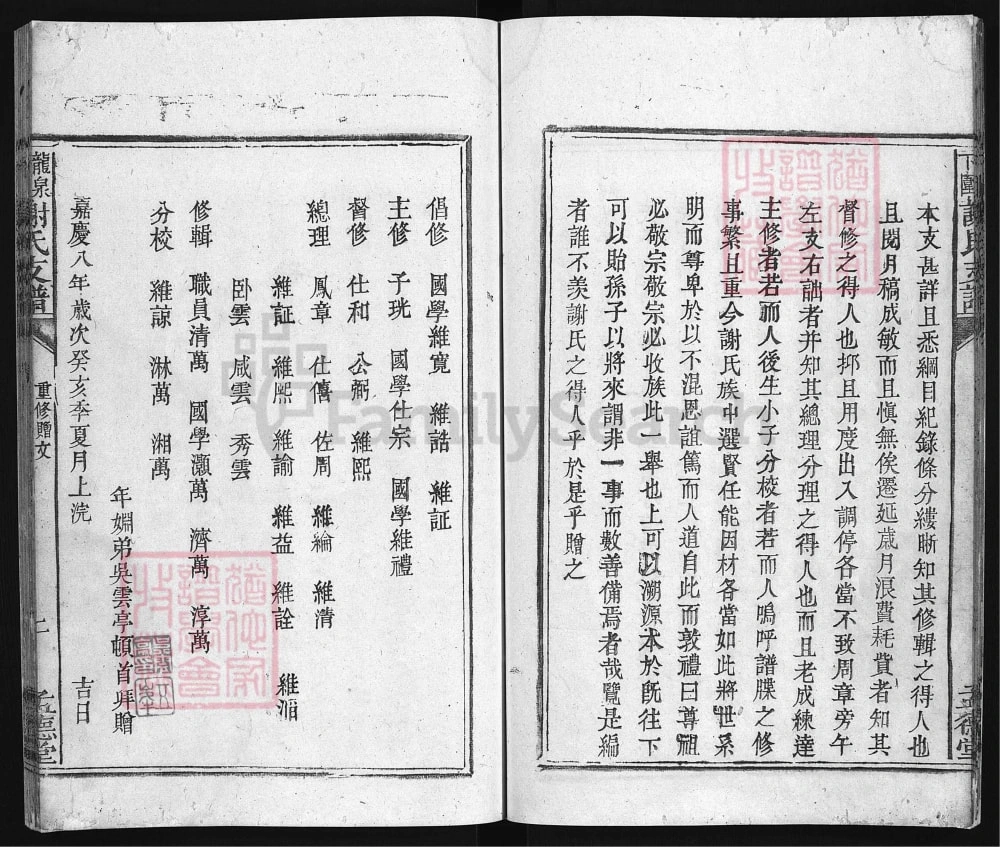 本支甚詳且悉綱目紀錄條分縷晰知其修輯之得人也
且閱月稿成敏而且慎無俟遷延歲月浪費耗費者知其
督修之得人也抑且用度出入調停各當不致周章旁午
左支右詘者并知其總理分理之得人也而且老成練達
主修者若而人後生小子分校者若而人嗚呼譜牒之修
事繁且重今謝氏族中選賢任能因材各當如此將世系
明而尊卑於以不混恩誼篤而人道自此而敦禮曰尊祖
必敬宗敬宗必收族此一舉也上可以溯源本於既往下
可以貽孫子以將來謂非一事而數善備焉者哉覽是編
者誰不羨謝氏之得人乎於是乎贈之
倡修 國學維寬 維誥 維証
主修 子珖 國學仕宗 國學維禮
督修 仕和 公弼 維熙
總理 鳳章 仕僖 佐周 維綸 維清
維証 維熙 維諭 維益 維詮 維
臥雲 咸雲 秀雲
修輯 職員清萬 國學灝萬 濟萬 淳萬
分校 維諒 淋萬 湘萬
年婣弟吳雲亭頓首拜贈
嘉慶八年歲次癸亥季夏月上浣 吉日
龍泉謝氏支譜 重修贈文 二 孟德堂
FamilySearch